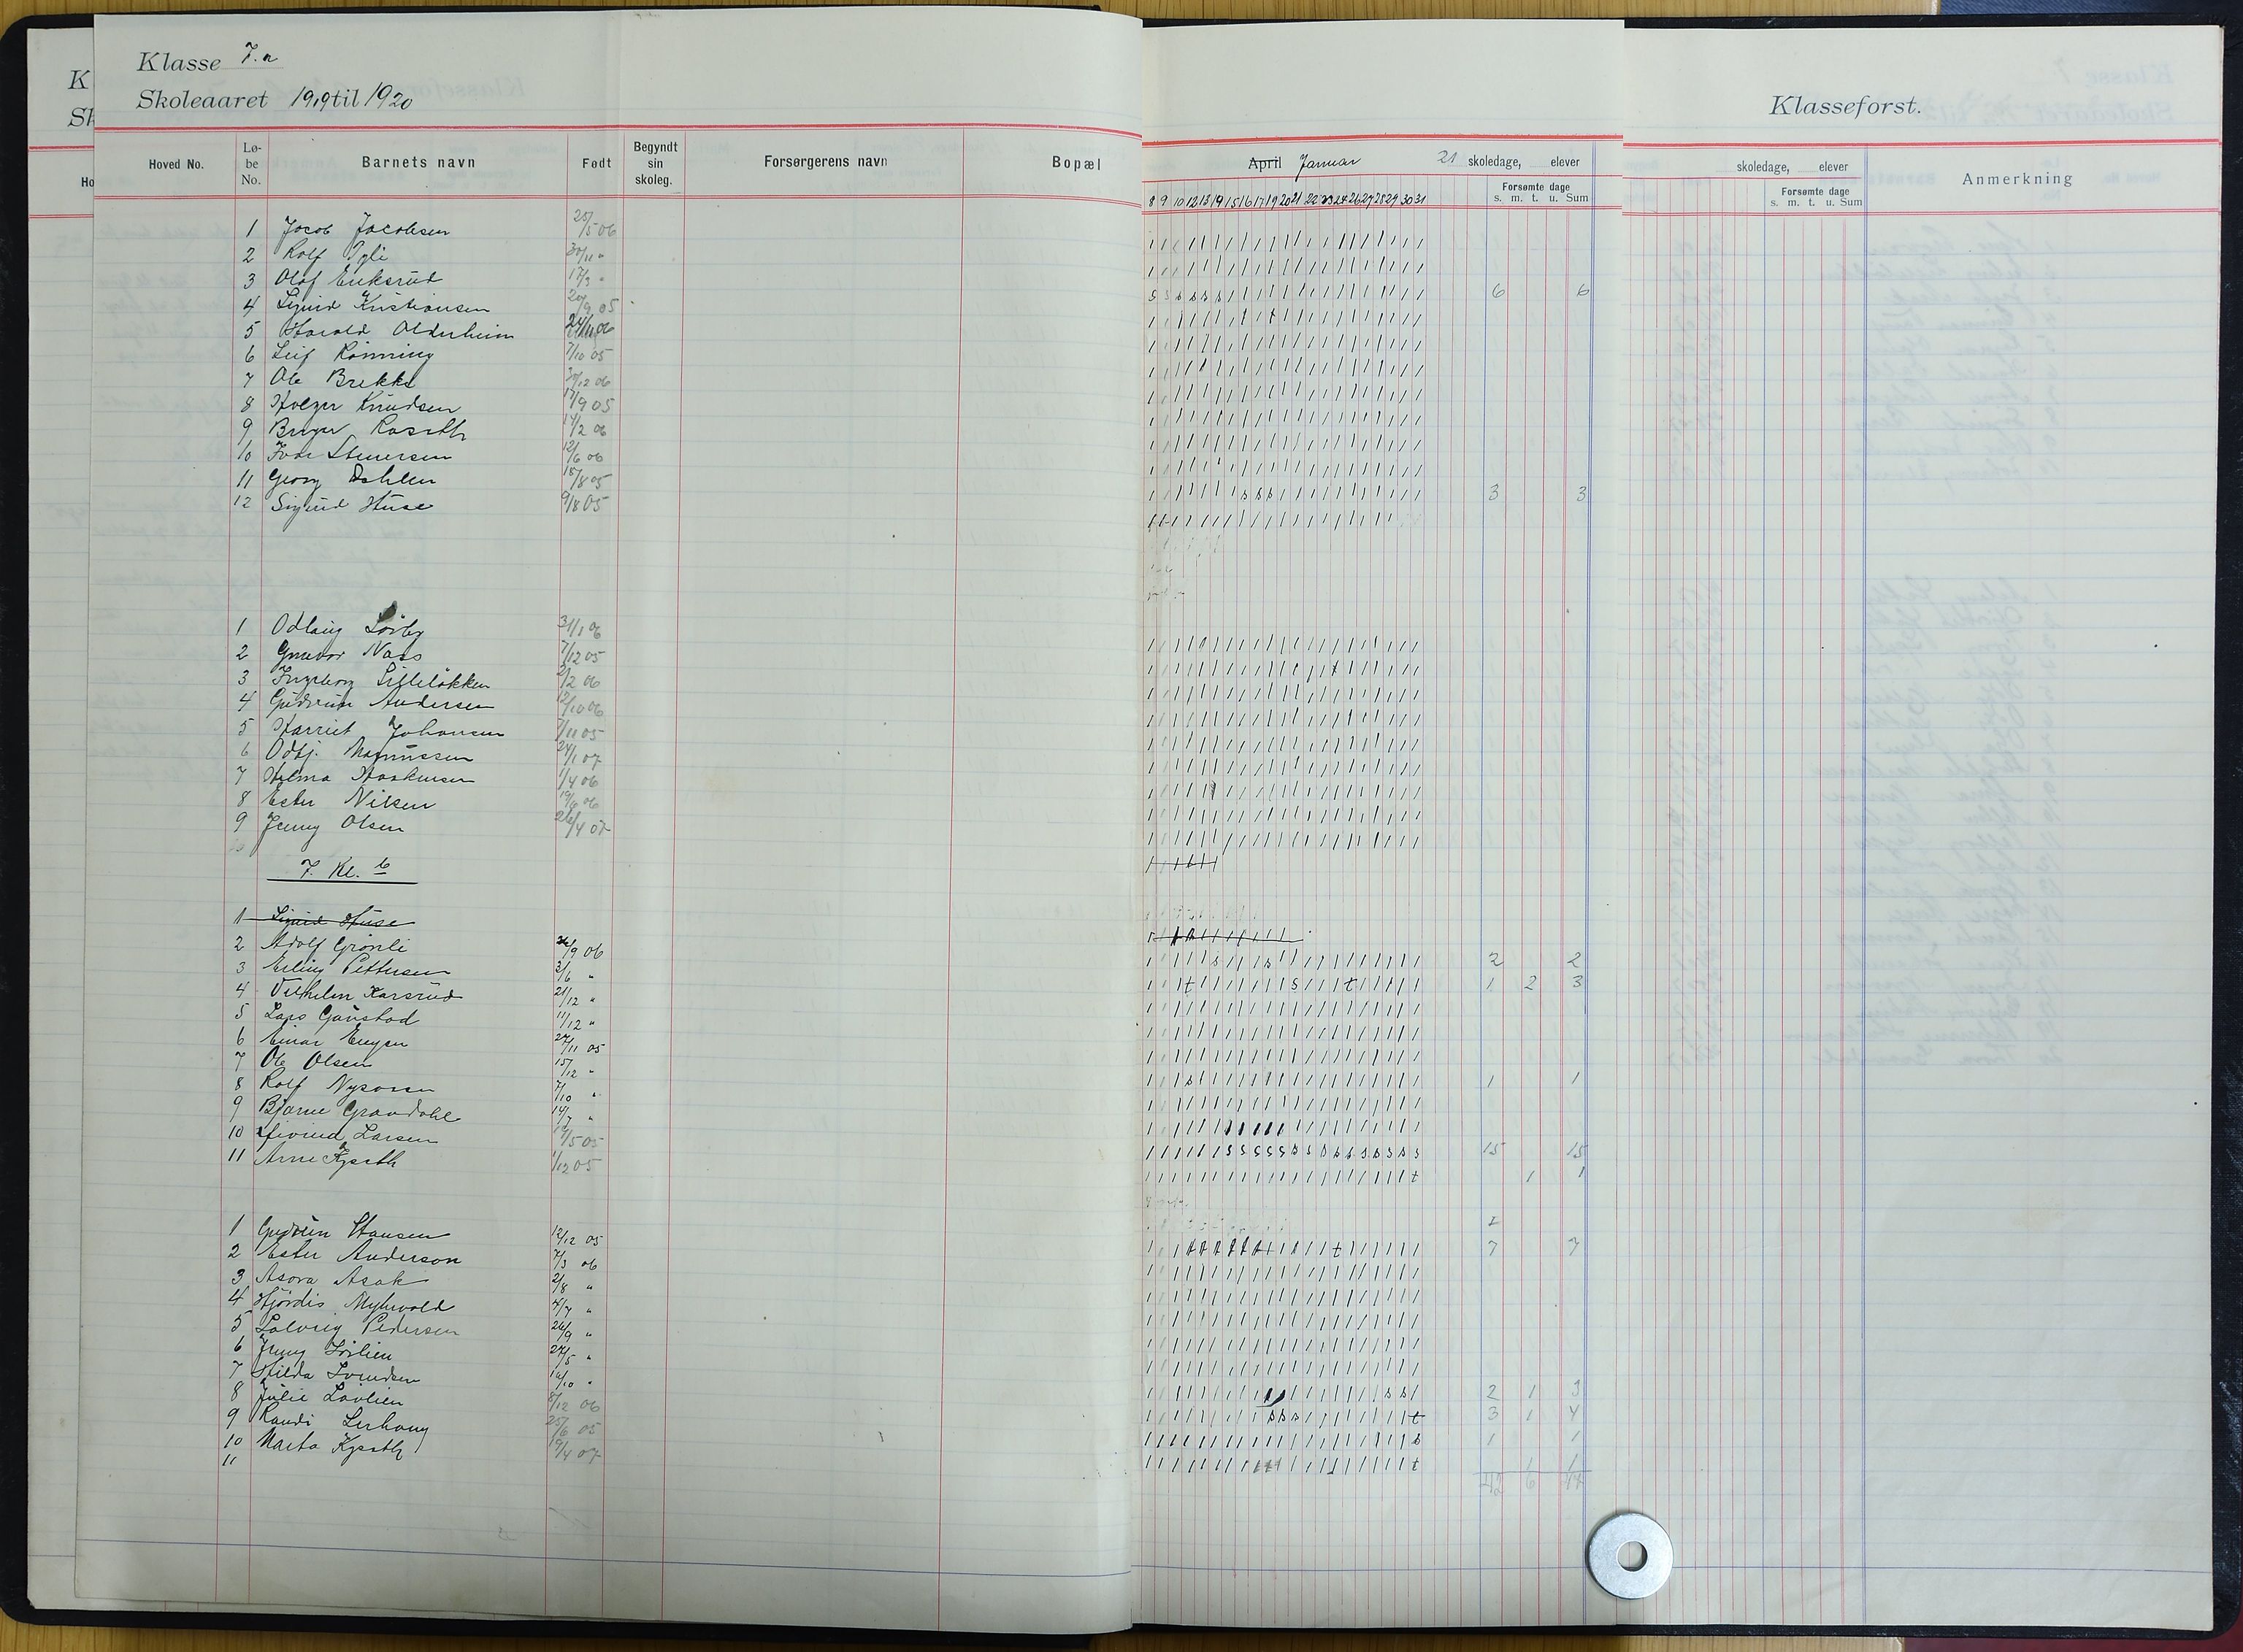 Klasse 7.a
Skoleaaret 1919 til 1920
Klasseforst.
Hoved No. Lø-be No. Barnets navn Født Begyndt sin skoleg. Forsørgerens navn Bopæl
April Januar 21 skoledage, elever
Forsømte dage
s. m. t. u. Sum
skoledage, elever
Forsømte dage
s. m. t. u. Sum
Anmerkning
8 9 10 12 13 14 15 16 17 19 20 21 22 23 24 26 27 28 29 30 31
1 Jacob Jacobsen 25/5 06
2 Rolf 30/11 "
3 Olaf Eriksrud 17/3 " 6 6
4 Sigurd Kristiansen 9 05
5 Harald Olderheim 24/11 06
6 Leif Rønning 7/10 05
7 Ole Brekke 30/12 06
8 Holger Knudsen 17/9 05
9 Birger 14/2 06
10 Ivar Stenersen 12/6 06
11 Georg Dahlen 15/8 05 3 3
12 Sigurd Huse 9/8 05
1 Odlaug 31/1 06
2 Gunvor Næss 7/12 05
3 Ingeborg Lilleløkken 2/2 06
4 Gudrun Andersen 12/10 06
5 Harriet Johansen 7/11 05
6 Odbj. Magnussen 24/1 07
7 Helma Haakensen 1/4 06
8 Ester Nilsen 19/6 06
9 Jenny Olsen 26/4 07
7. Kl. b
1 Sigurd Huse
2 Adolf Grønli /9 06 2 2
3 Erling Pettersen 3/6 " 1 2 3
4 Vilhelm Karsrud 21/12 "
5 Lars Gaustad 11/12 "
6 Einar Engen 27/11 05
7 Ole Olsen 15/12 " 1 1
8 Rolf 7/10 "
9 Bjarne Grandahl 14/7 "
10 Eivind Larsen /5 05 15 15
11 Arne 1/12 05 1 1
1 Gudrun Hansen 12/12 05 7 7
2 Ester Anderson 7/3 06
3 Asora Asak 2/8 "
4 Hjørdis Myhrvold 4/7 "
5 Solveig Pedersen 26/9 "
6 Jenny 27/5 "
7 Hilda Svendsen /10 " 2 1 3
8 Julie Løvlien 8/12 06 3 1 4
9 Randi 25/6 05 1 1
10 Marta 19/4 07 1 1
11
42 6